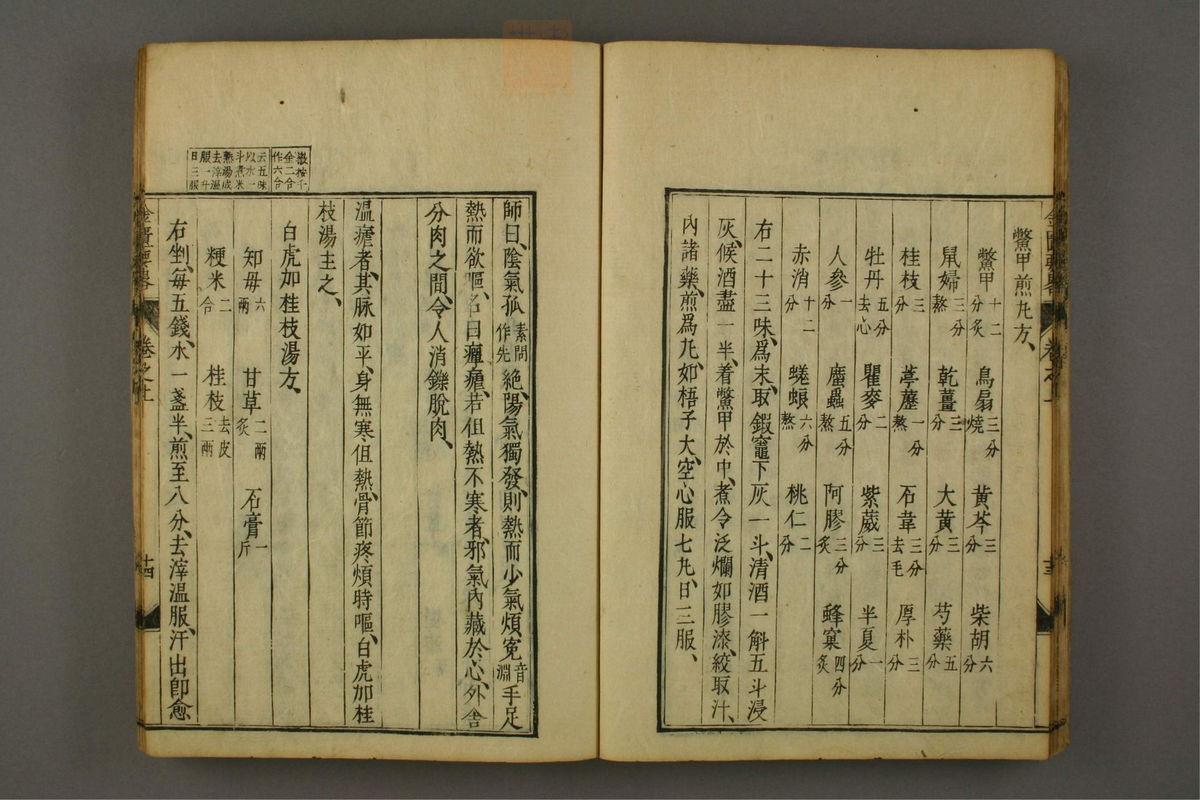 鱉甲煎丸方、
鱉甲十二分炙 烏扇三分燒 黃芩三分 柴胡六分
鼠婦三分熬 乾薑三分 大黃三分 芍藥五分
桂枝三分 葶藶一分熬 石韋三分去毛 厚朴三分
牡丹五分去心 瞿麥二分 紫葳三分 半夏一分
人參一分 䗪蟲五分熬 阿膠三分炙 蜂窠四分炙
赤消十二分 蜣蜋六分熬 桃仁二分
右二十三味、爲末、取鍜竈下灰一斗、清酒一斛五斗浸
灰、候酒盡一半、着鱉甲於中、煮令泛爛如膠漆、絞取汁、
內諸藥、煎爲丸、如梧子大、空心服七丸、日三服、
卷之上
十三
師曰、陰氣孤素問作先絕、陽氣獨發、則熱而少氣煩寃音淵手足
熱而欲嘔、名曰癉瘧、若但熱不寒者、邪氣內藏於心、外舍
分肉之間、令人消鑠脫肉、
溫瘧者、其脉如平、身無寒但熱、骨節疼煩時嘔、白虎加桂
枝湯主之、
白虎加桂枝湯方、
知母六兩 甘草二兩炙 石膏一斤
粳米二合 桂枝去皮三兩
右剉、每五錢、水一盞半、煎至八分、去滓溫服、汗出卽愈
徽按千
金二合
作六合
云五味
以水一
斗煮米
熟湯成
去滓溫
服一升
日三服
金匱要畧
卷之上
十四